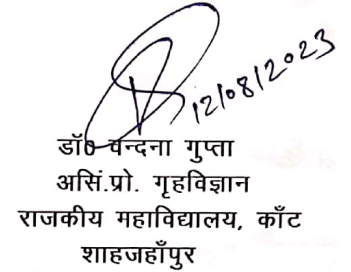 12/08/2023
डॉ0 वन्दना गुप्ता
असिं.प्रो. गृहविज्ञान
राजकीय महाविद्यालय, काँट
शाहजहाँपुर